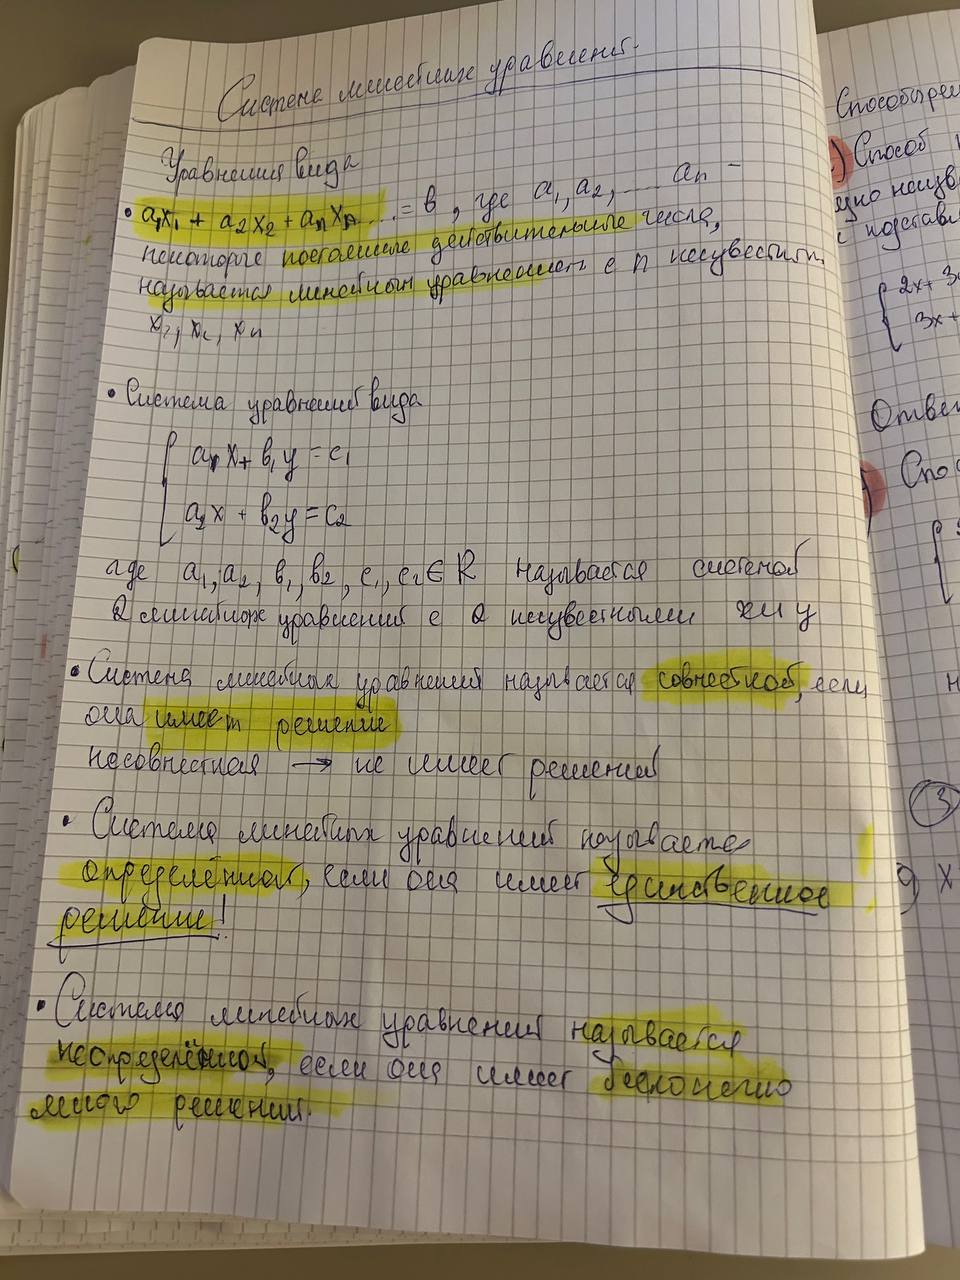 Система линейных уравнений.
Уравнения вида
• a₁x₁ + a₂x₂ + aₙxₙ .... = b, где a₁, a₂, ..... aₙ –
некоторые постоянные действительные числа,
называется линейным уравнением с n неизвестн.
x₁, x₂, xₙ
• Система уравнений вида
{ a₁x + b₁y = c₁
a₂x + b₂y = c₂
где a₁, a₂, b₁, b₂, c₁, c₂ ∈ R называется системой
2 линейных уравнений с 2 неизвестными x и y
• Система линейных уравнений называется совместной, если
она имеет решение
несовместная → не имеет решений
• Система линейных уравнений называется
определённой, если она имеет единственное
решение!
• Система линейных уравнений называется
неопределённой, если она имеет бесконечно
много решений.
Способ
{ 2x + 3
3x +
Ответ
Спос
3
x